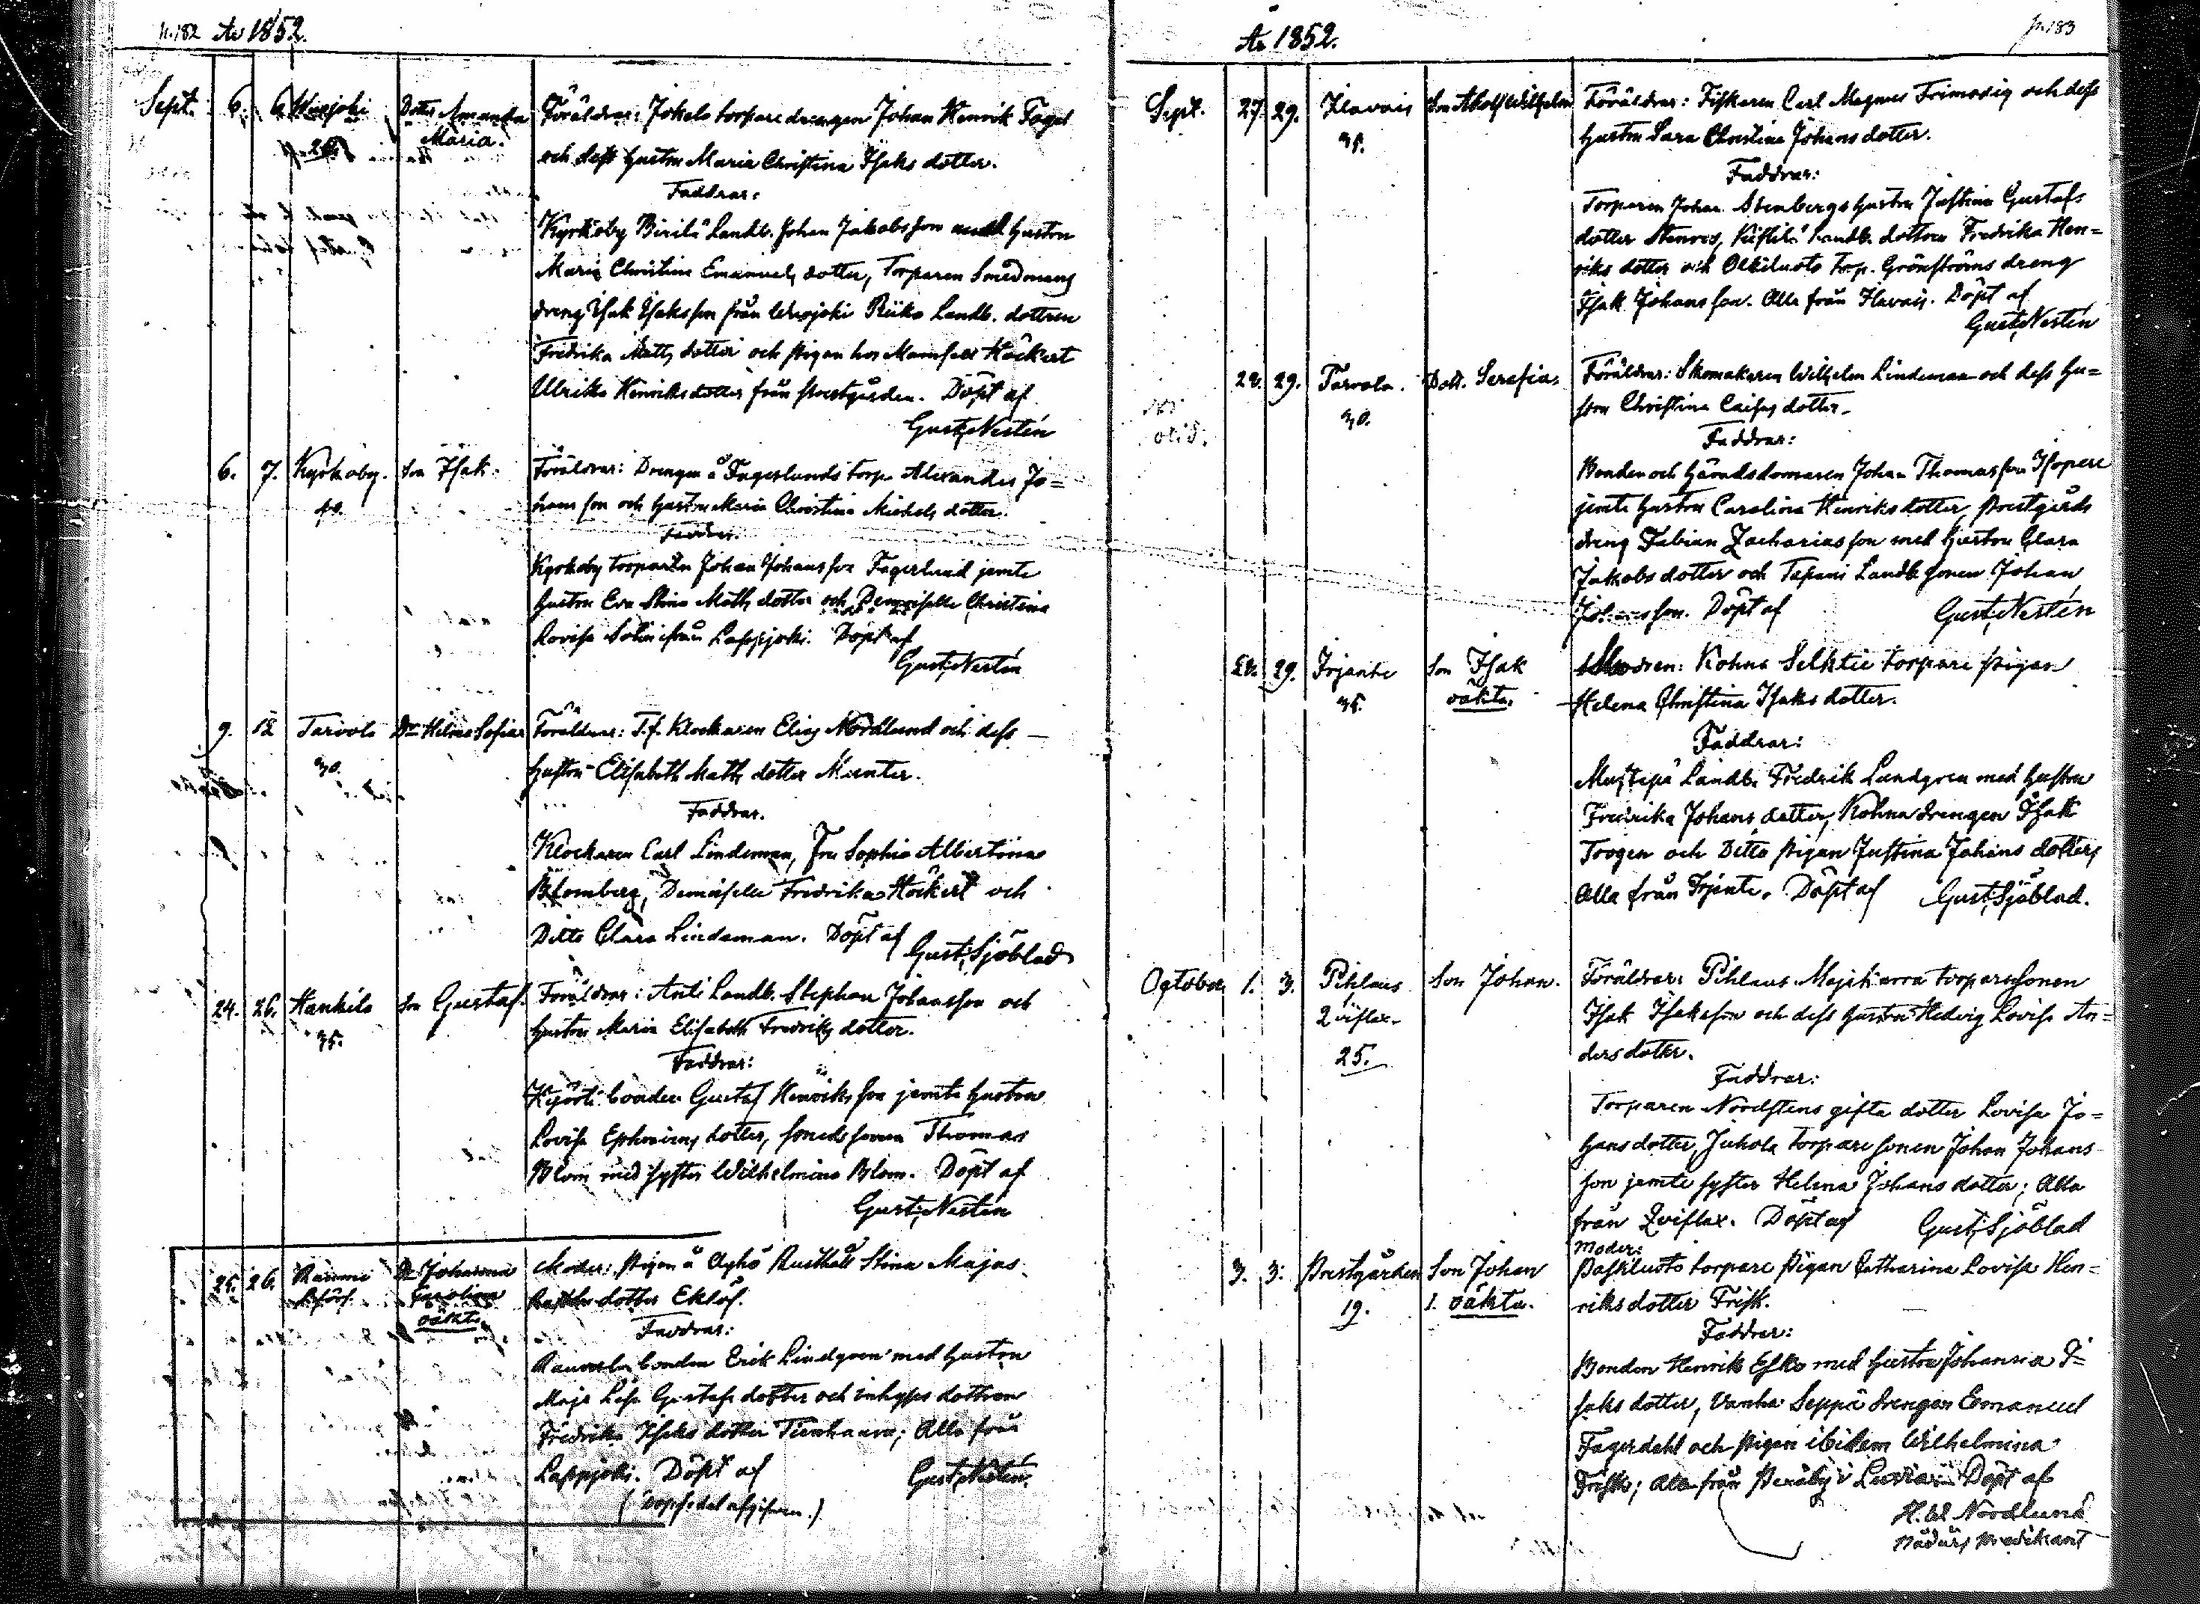 p. 182 År 1852.
Sept. 6. 6. Wuojoki Dottr Amanda Föräldrar: Jokela torpare drengen Johan Henrik Fagel
Maria. och dess hustru Maria Christina Isaks dotter.
Faddrar:
Kyrkoby Birilä Landb. Johan Jakobsson med hustru
Maria Christina Emanuels dotter, Torparen Smedmans
dreng Isak Isaksson från Wuojoki Riiko Landb. dottren
Fredrika Matts dotter och pigan hos Mamsell Höckert
Ulrika Henriksdotter från prestgården. Döpt af
Gust. Nestén
6. 7. Kyrkoby. Son Isak. Föräldrar: Drengen å Fagerlunds torp Alexander Jo=
40. hansson och hustru Maria Christina Michels dotter.
Faddrar.
Kyrkoby torparen Johan Johansson Fagerlund jemte
hustru Eva Stina Matts dotter och Demoiselle Christina
Lovisa Solin från Lappjoki. Döpt af
Gust. Nestén
9. 12 Tarvola Dr Helena Sofia Föräldrar: T.f. Klockaren Elias Nordlund och dess
30. hustru Elisabeth Matts dotter Münter.
Faddrar.
Klockaren Carl Lindeman, Fru Sophia Albertina
Blomberg, Demoiselle Fredrika Höckert och
Ditto Clara Lindeman. Döpt af Gust. Sjöblad
24. 26. Hankila Son Gustaf. Föräldrar: Anti Landb. Stephan Johansson och
35. hustru Maria Elisabeth Fredriks dotter.
Faddrar:
bonden Gustaf Henriksson jemte hustru
Lovisa Ephraims dotter, smedssonen Thomas
Blom med syster Wilhelmina Blom. Döpt af
Gust. Nestén
25. 26. Raumo Dr Johanna Moder: pigan å Ayhö Rusthåll Stina Majas
Carolina dotter Eklöf.
oäkta. Faddrar:
bonden Erik Lindgren med hustru
Maja Lisa Gustafs dotter och inhyses dottren
Fredrika Isaks dotter Tienhaara; Alla från
Lappjoki. Döpt af Gust. Nestén.
(Dopsedel afgifven.)
År 1852. p. 183
Sept. 27. 29. Ilavais Son Adolf Wilhelm Föräldrar: Fiskaren Carl Magnus Frimodig och dess
35. hustru Sara Christina Johans dotter.
Faddrar:
Torparen Johan Stenbergs hustru Justina Gustafs
dotter Stenros, Landb. dottren Fredrika Hen=
riks dotter och Olkiluoto torp. Grönströms dreng
Isak Johansson. Alla från Ilavais. Döpt af
Gust. Nestén
28. 29. Tarvola. Dott. Serafia. Föräldrar: Skomakaren Wilhelm Lindeman och dess hu=
30. stru Christina Caisas dotter.
Faddrar:
Bonden och häradsdomaren Johan Thomasson Isopere
jemte hustru Carolina Henriks dotter, prestgårds
dreng Fabian Zachariasson med hustru Clara
Jakobs dotter och Tapani Landb. sonen Johan
Johansson. Döpt af Gust. Nestén
28. 29. Irjante Son Isak Modren: Kohna Selktie torpare pigan
35. oäkta. Helena Christina Isaks dotter.
Faddrar:
Mustepä Landb. Fredrik Lundgren med hustru
Fredrika Johans dotter, Kohna drengen Isak
Trogen och Ditto pigan Justina Johans dotter,
Alla från Irjante. Döpt af Gust. Sjöblad.
October 1. 3. Pihlaus Son Johan. Föräldrar: Pihlaus Majskarra torparesonen
Qviflax. Isak Isaksson och dess hustru Hedvig Lovisa An=
25. dersdotter.
Faddrar:
Torparen Nordstens gifta dotter Lovisa Jo=
hansdotter, Juhola torpare sonen Johan Johans
son jemte syster Helena Johans dotter; Alla
från Qviflax. Döpt af Gust. Sjöblad
Moder:
3. 3. Prestgården Son Johan Paskluoto torpare Pigan Catharina Lovisa Hen=
19. 1. oäkta. riksdotter Frisk.
Faddrar:
Bonden Henrik Esko med hustru Johanna I=
saks dotter, Vanha Seppä drengen Emanuel
Fagerdahl och pigan ibidem Wilhelmina
Frisk; alla från Peräby i Luvia. Döpt af
H. W. Nordlund
Nådårs predikant